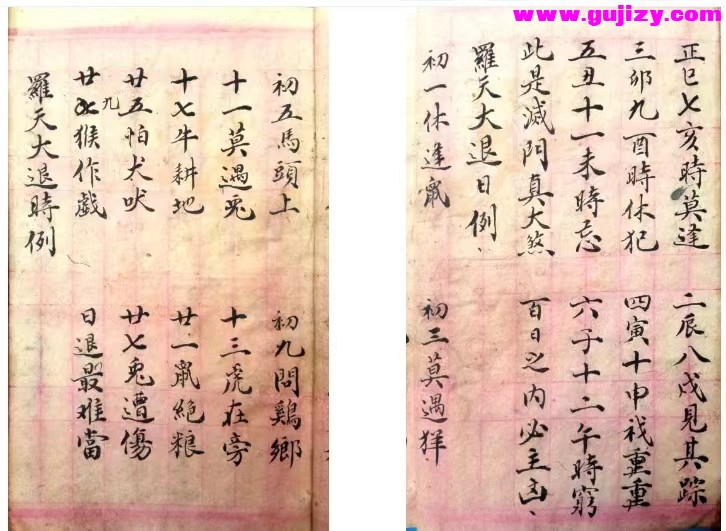 www.gujizy.com
正巳七亥時莫逢 二辰八戌見其踪
三卯九酉時休犯 四寅十申禍重重
五丑十一未時忌 六子十二午時窮
此是滅門真大煞 百日之內必主凶
羅天大退日例
初一休逢鼠 初三莫遇羊
初五馬頭上 初九問鷄鄉
十一莫遇兎 十三虎在旁
十七牛耕地 廿一鼠絕粮
廿五怕犬吠 廿七兎遭傷
廿九猴作戲 日退最难當
羅天大退時例